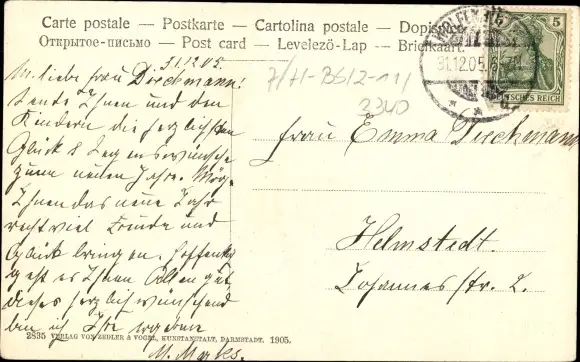 Carte postale — Postkarte — Cartolina postale — Dopisnice
Открытое-письмо — Post card — Levelező-Lap — Briefkaart
WOLFENB
31.12.05.6-7N.
5
DEUTSCHES REICH
7/71-BS/2-11/
2340
31.12.05.
M. liebe Frau Dieckmann!
Sende Ihnen und den
Kindern die herzlichsten
Glück & Segenswünsche
zum neuen Jahre. Möge
Ihnen das neue Jahr
recht viel Freude und
Glück bringen. Hoffentlich
geht es Ihnen Allen gut
dieses herzlich wünschend
bin ich Ihr ergebener
Frau Emma Dieckmann
Helmstedt.
Johannesstr. 2.
2835 VERLAG VON ZEDLER & VOGEL, KUNSTANSTALT, DARMSTADT. 1905.